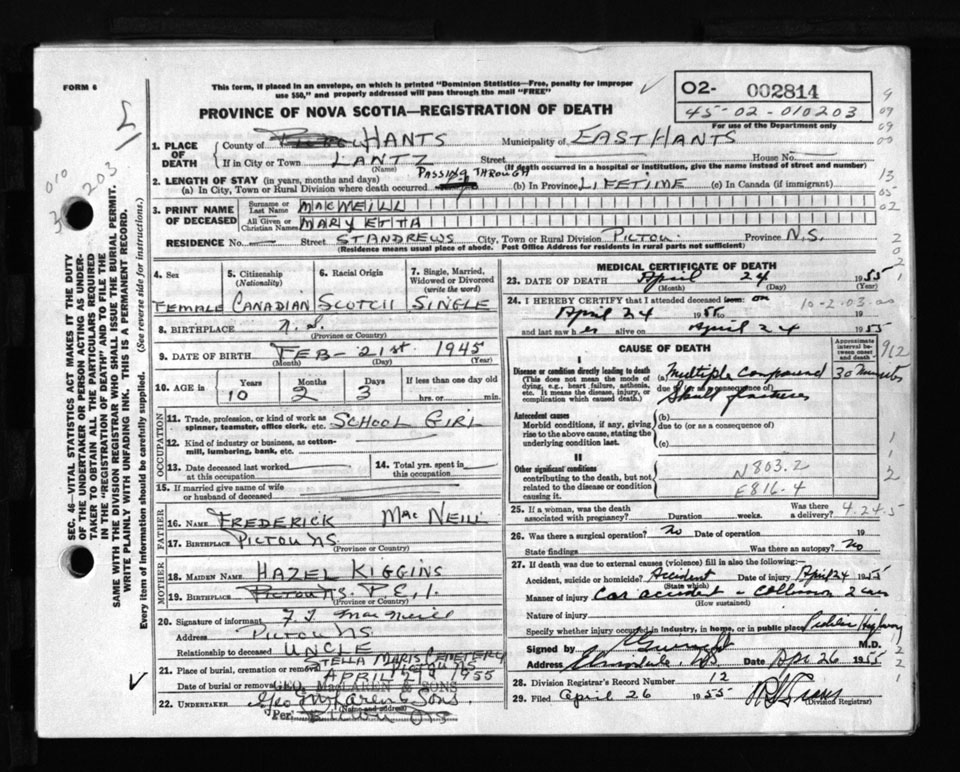 FORM 6
This form, if placed in an envelope, on which is printed "Dominion Statistics—Free, penalty for improper
use $50," and properly addressed will pass through the mail "FREE"
02- 002814
45-02-010203
For use of the Department only
PROVINCE OF NOVA SCOTIA—REGISTRATION OF DEATH
1. PLACE OF DEATH
County of HANTS Municipality of EAST HANTS
If in City or Town LANTZ Street House No.
(Name) (If death occurred in a hospital or institution, give the name instead of street and number)
2. LENGTH OF STAY (in years, months and days) PASSING THROUGH
(a) In City, Town or Rural Division where death occurred (b) In Province LIFETIME (c) In Canada (if immigrant)
3. PRINT NAME OF DECEASED
Surname or Last Name MACNEILL
All Given or Christian Names MARY ETTA
RESIDENCE No. Street ST ANDREWS City, Town or Rural Division PICTOU Province N.S.
(Residence means usual place of abode. Post Office Address for residents in rural parts not sufficient)
SEC. 46—VITAL STATISTICS ACT MAKES IT THE DUTY
OF THE UNDERTAKER OR PERSON ACTING AS UNDER-
TAKER TO OBTAIN ALL THE PARTICULARS REQUIRED
IN THE "REGISTRATION OF DEATH" AND TO FILE THE
SAME WITH THE DIVISION REGISTRAR WHO SHALL ISSUE THE BURIAL PERMIT.
WRITE PLAINLY WITH UNFADING INK. THIS IS A PERMANENT RECORD.
Every item of information should be carefully supplied. (See reverse side for instructions.)
4. Sex FEMALE
5. Citizenship (Nationality) CANADIAN
6. Racial Origin SCOTCH
7. Single, Married, Widowed or Divorced (write the word) SINGLE
8. BIRTHPLACE N.S.
(Province or Country)
9. DATE OF BIRTH FEB - 21st 1945
(Month) (Day) (Year)
10. AGE IN Years Months Days If less than one day old
10 2 3 hrs. or min.
OCCUPATION
11. Trade, profession, or kind of work as spinner, teamster, office clerk, etc. SCHOOL GIRL
12. Kind of industry or business, as cotton-mill, lumbering, bank, etc.
13. Date deceased last worked at this occupation
14. Total yrs. spent in this occupation
15. If married give name of wife or husband of deceased
FATHER
16. NAME FREDERICK MacNEILL
17. BIRTHPLACE PICTOU NS
(Province or Country)
MOTHER
18. MAIDEN NAME HAZEL KIGGINS
19. BIRTHPLACE P.E.I.
(Province or Country)
20. Signature of informant F. J. MacNeill
Address PICTOU NS
Relationship to deceased UNCLE
STELLA MARIS CEMETERY
21. Place of burial, cremation or removal PICTOU NS
Date of burial or removal APRIL 27th 1955
GEO. MacLAREN & SONS
22. UNDERTAKER Geo McLaren Sons.
(Name and address)
Per
MEDICAL CERTIFICATE OF DEATH
23. DATE OF DEATH April 24 1955
(Month) (Day)
24. I HEREBY CERTIFY that I attended deceased from on
April 24 1955 to 19
and last saw her alive on April 24 1955
10-2.03.00
CAUSE OF DEATH
Approximate interval between onset and death
912
I
Disease or condition directly leading to death (a) Multiple compound 30 minutes
(This does not mean the mode of dying, e.g., heart failure, asthenia, etc. It means the disease, injury, or complication which caused death.)
due to (or as a consequence of) Skull fractures
Antecedent causes
Morbid conditions, if any, giving rise to the above cause, stating the underlying condition last.
(b)
due to (or as a consequence of)
(c)
II
Other significant conditions
contributing to the death, but not related to the disease or condition causing it.
N803.2
E816.4
4.24.5
25. If a woman, was the death associated with pregnancy? Duration weeks. Was there a delivery?
26. Was there a surgical operation? no Date of operation 19
State findings Was there an autopsy? No
27. If death was due to external causes (violence) fill in also the following:—
Accident, suicide or homicide? Accident Date of injury April 24 1955
(State which)
Manner of injury Car accident - Collision 2 cars
(How sustained)
Nature of injury
Specify whether injury occurred in industry, in home, or in public place Public Highway
Signed by M.D.
Address Date Apr 26 1955
28. Division Registrar's Record Number 12
29. Filed April 26 1955
(Division Registrar)